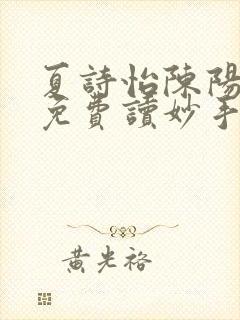 夏詩怡陳陽
免費讀妙手
黃光裕